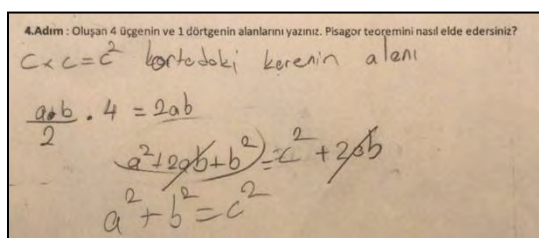 4.Adım : Oluşan 4 üçgenin ve 1 dörtgenin alanlarını yazınız. Pisagor teoremini nasıl elde edersiniz?
c x c = c² kortadaki karenin alanı
a.b/2 . 4 = 2ab
a²+2ab+b² = c²+2ab
a²+b²=c²